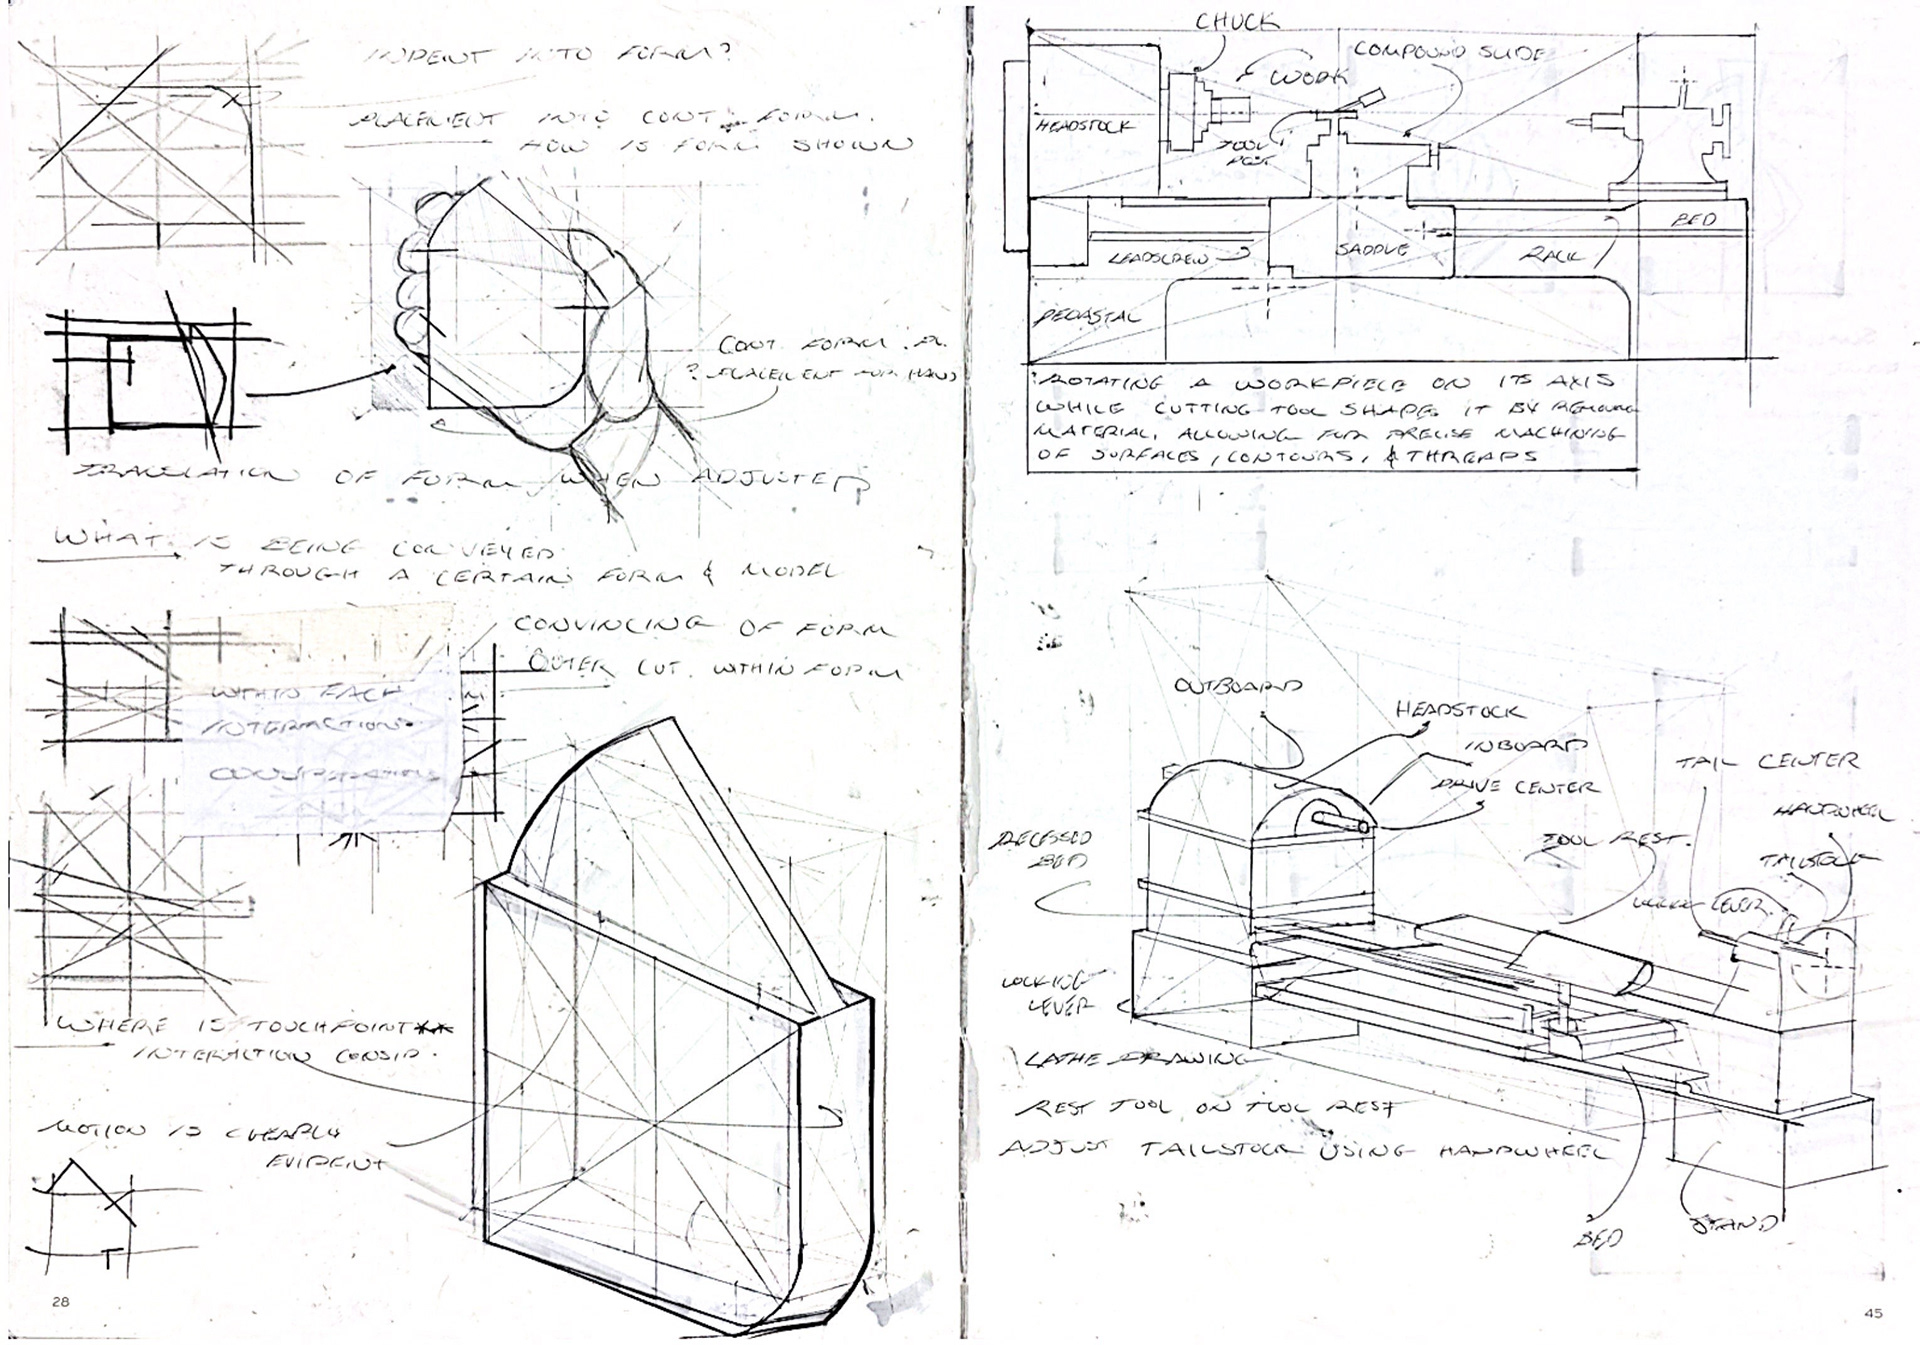 INDENT INTO FORM?
PLACEMENT INTO CONT. FORM.
HOW IS FORM SHOWN
CONT. FORM.
? PLACEMENT FOR HAND
TRANSLATION OF FORM WHEN ADJUSTED
WHAT IS BEING CONVEYED
THROUGH A CERTAIN FORM & MODEL
CONVINCING OF FORM
OUTER CUT. WITHIN FORM
WITHIN EACH
INTERACTIONS
WHERE IS TOUCHPOINT**
INTERACTION CONSID.
MOTION IS CLEARLY
EVIDENT
28
CHUCK
WORK
COMPOUND SLIDE
HEADSTOCK
TOOL
POST
BED
LEADSCREW
SADDLE
RACK
PEDASTAL
ROTATING A WORKPIECE ON ITS AXIS
WHILE CUTTING TOOL SHAPES IT BY REMOVING
MATERIAL, ALLOWING FOR PRECISE MACHINING
OF SURFACES, CONTOURS, & THREADS
OUTBOARD
HEADSTOCK
INBOARD
DRIVE CENTER
TAIL CENTER
HANDWHEEL
RECESSED
BED
TOOL REST.
TAILSTOCK
LEVER
LOCKING
LEVER
LATHE DRAWING
REST TOOL ON TOOL REST
ADJUST TAILSTOCK USING HANDWHEEL
BED
STAND
45